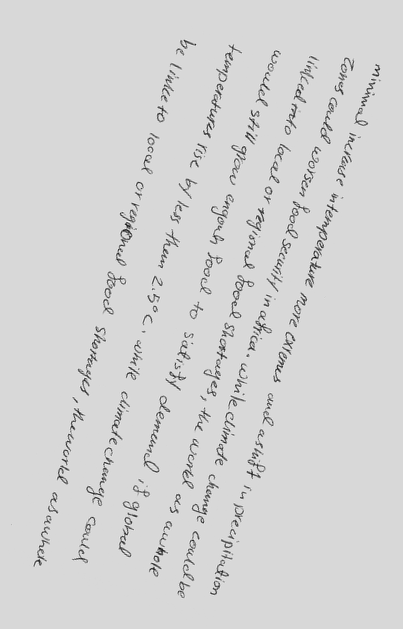 minimal increase in temperature more extremes and a shift in precipitation
zones could worsen food security in africa. while climate change could be
linked into local or regional food shortages, the world as a whole
would still grow enough food to satisfy demand if global
temperatures rise by less then 2.5°C. while climate change could
be linke to local or regional food shortages, the world as a whole